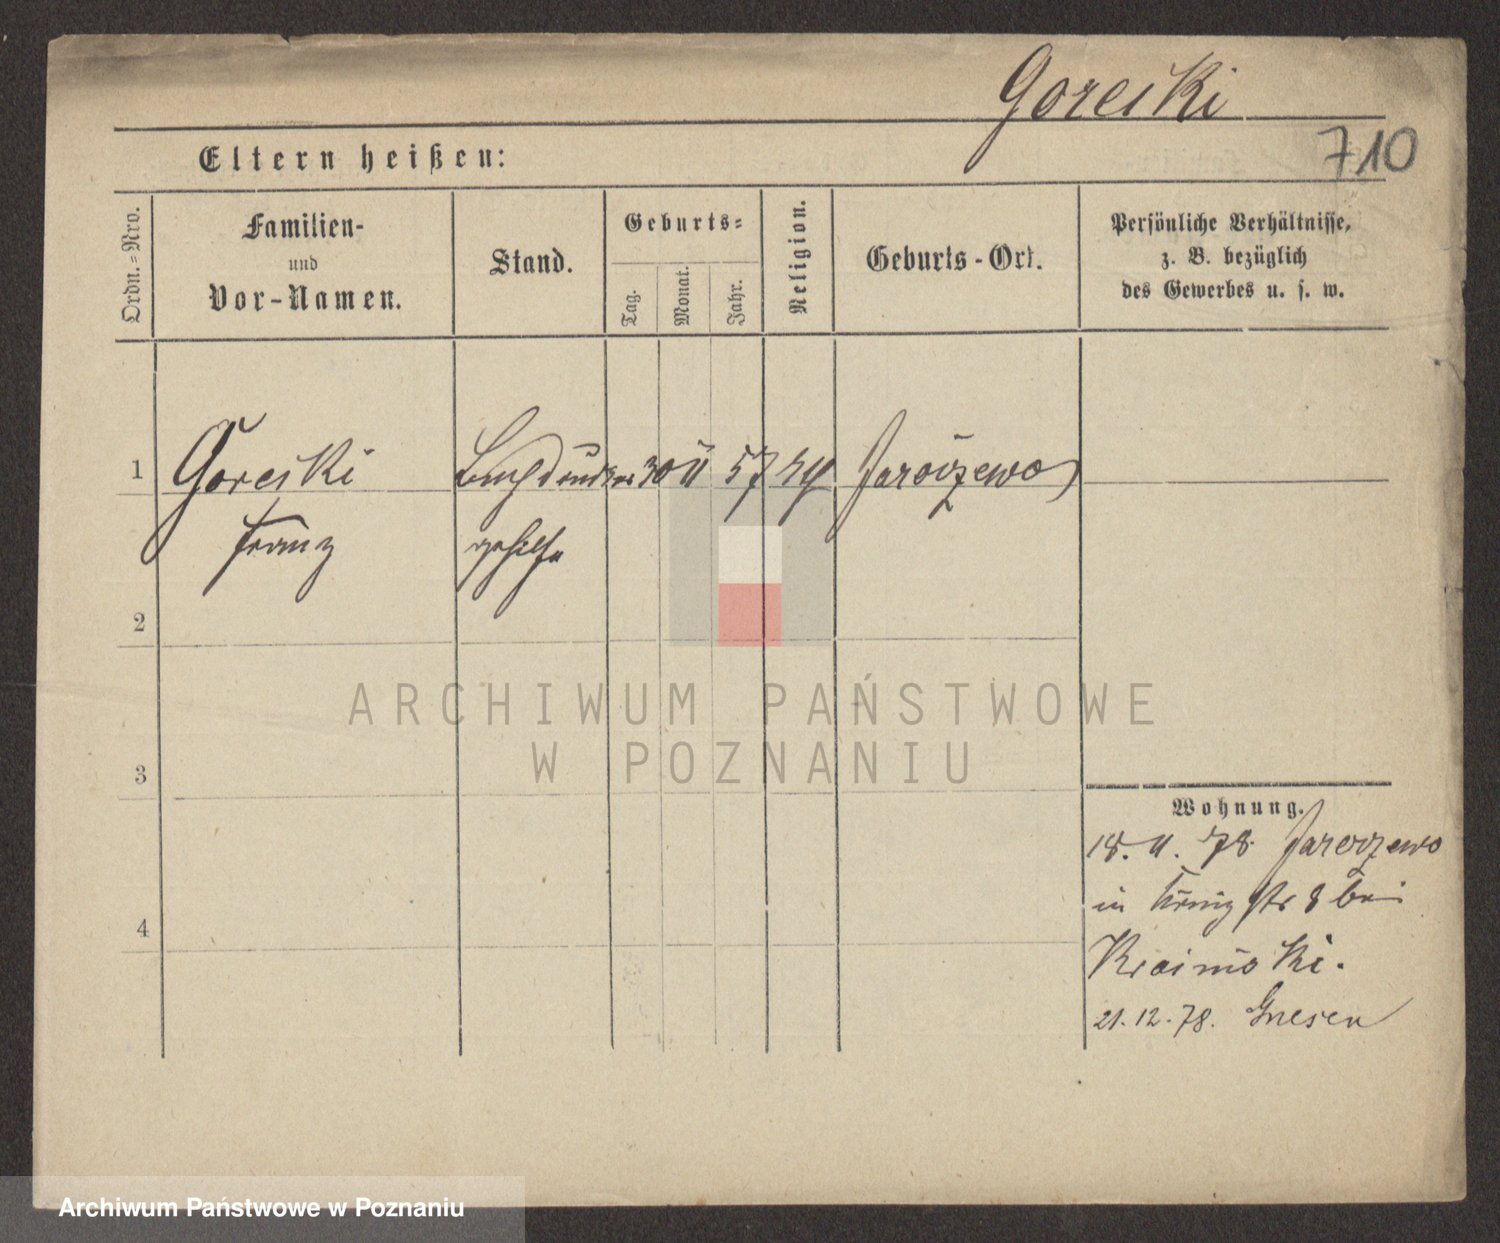 Goreski
710
Eltern heißen:
Ordn.=Nro.
Familien-
und
Vor-Namen.
Stand.
Geburts=
Tag.
Monat.
Jahr.
Religion.
Geburts-Ort.
Persönliche Verhältnisse,
z. B. bezüglich
des Gewerbes u. s. w.
1
Goreski
Franz
Buchdrucker
gehilfe
30 11 57
Jaroczewo
2
3
4
Wohnung.
18. 11. 78 Jaroczewo
in str 8 bei
21.12.78. Gnesen
ARCHIWUM PAŃSTWOWE
W POZNANIU
Archiwum Państwowe w Poznaniu